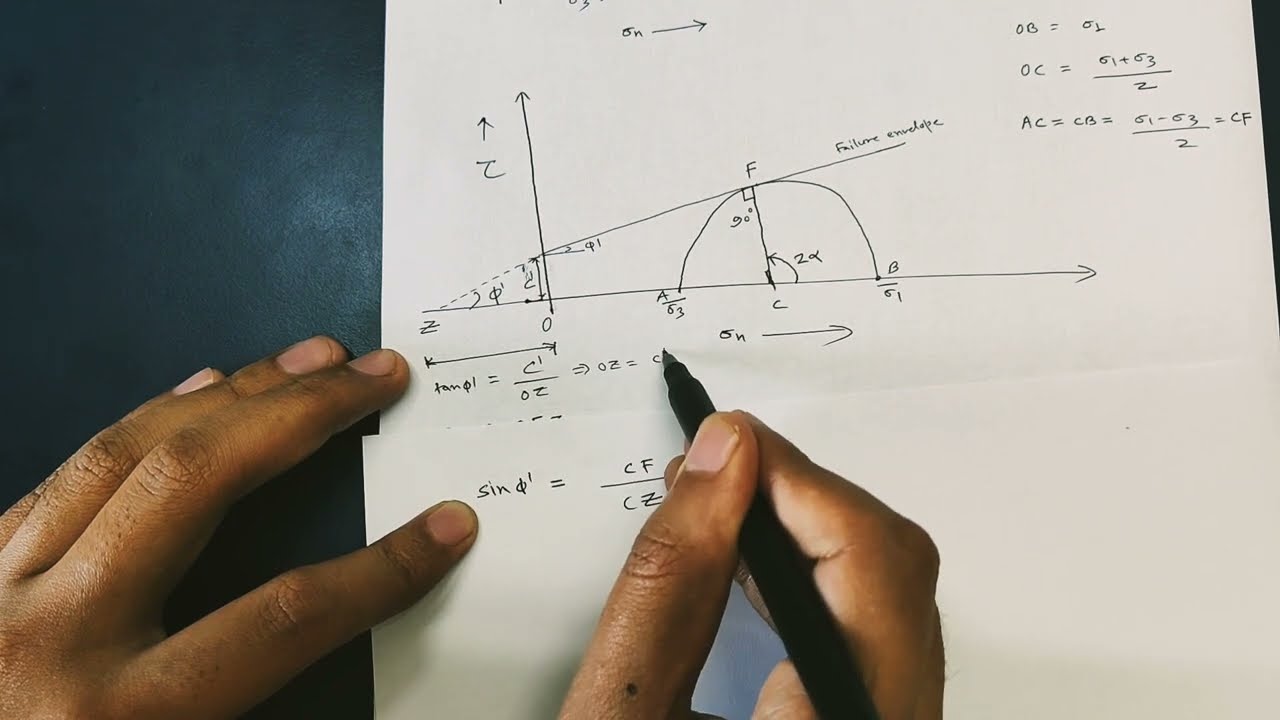 σn →
OB = σ1
OC = σ1+σ3 / 2
AC = CB = σ1-σ3 / 2 = CF
↑ τ
Failure envelope
F
90°
φ'
2α
C'
φ'
Z
O
A
σ3
C
B
σ1
σn →
tanφ' = C' / OZ ⇒ OZ = c
sinφ' = CF / CZ